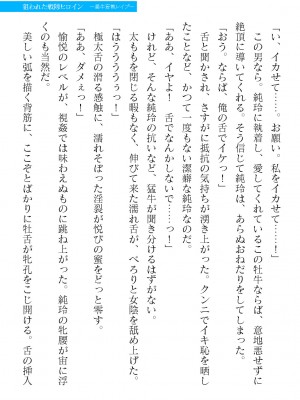 狙われた戦隊ヒロイン
「い、イカせて……。お願い。私をイカせて……！」
この男なら、純玲に執着し、愛してくれているこの牡牛ならば、意地悪せずに
絶頂に導いてくれる。そう信じて純玲は、あらぬおねだりをしてしまった。
「おう。ならば、俺の舌でイケっ！」
舌と聞かされ、さすがに抵抗の気持ちが湧き上がった。クンニでイキ恥を晒し
たことなど、かつて一度もない潔癖な純玲なのだ。
「ああ、イヤよ！　舌でなんかしないで……っ！」
けれど、そんな純玲の抗いなど、猛牛が聞き分けるはずがない。
太ももを閉じる暇もなく、伸びて来た濡れ舌が、べろりと女陰を舐め上げた。
「はぅぅぅぅっ！」
極太舌の滑る感触に、濡れそぼった淫裂が悦びの蜜をどっと零す。
「ああ、ダメぇっ！」
愉悦のレベルが、視姦では味わえぬものに跳ね上がった。純玲の牝腰が宙に浮
くのも当然だ。
美しい弧を描く背筋に、ここぞとばかりに牡舌が牝孔をこじ開ける。舌の挿入